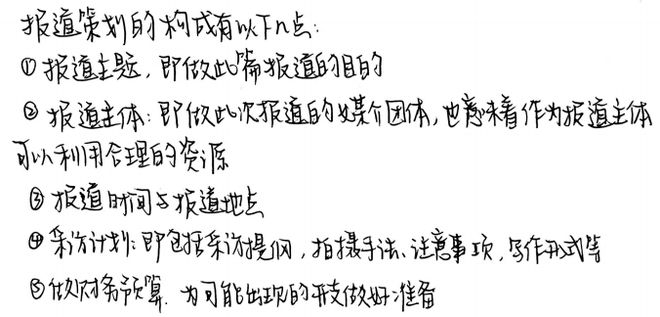 报道策划的构成有以下几点:
①报道主题，即做此篇报道的目的
②报道主体:即做此次报道的媒介团体，也意味着作为报道主体
可以利用合理的资源
③报道时间与报道地点
④采访计划:即包括采访提纲，拍摄手法、注意事项，写作形式等
⑤做财务预算，为可能出现的开支做好准备